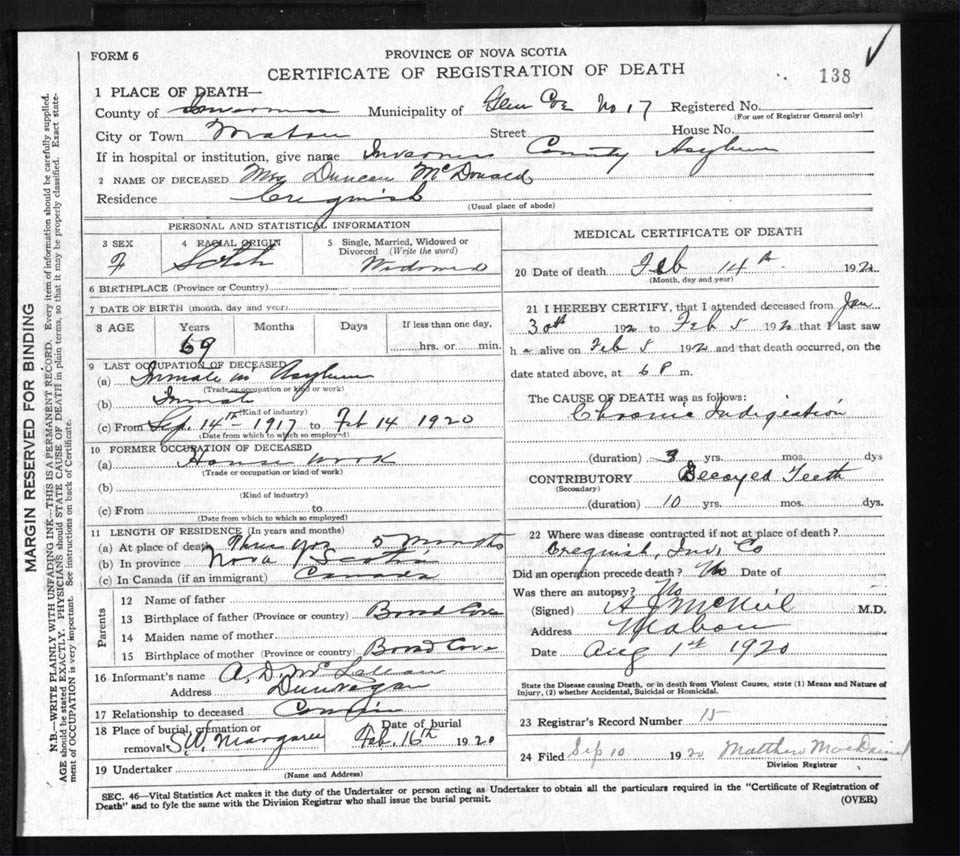 FORM 6
PROVINCE OF NOVA SCOTIA
CERTIFICATE OF REGISTRATION OF DEATH
138
1 PLACE OF DEATH—
County of Inverness Municipality of Glen Coe No 17 Registered No.
(For use of Registrar General only)
City or Town Mabou Street House No.
If in hospital or institution, give name Inverness County Asylum
2 NAME OF DECEASED Mrs Duncan McDonald
Residence Creignish
(Usual place of abode)
PERSONAL AND STATISTICAL INFORMATION
3 SEX
F
4 RACIAL ORIGIN
Scotch
5 Single, Married, Widowed or
Divorced (Write the word)
Widowed
6 BIRTHPLACE (Province or Country)
7 DATE OF BIRTH (month, day and year)
8 AGE Years Months Days If less than one day,
69 hrs. or min.
9 LAST OCCUPATION OF DECEASED
(a) Inmate in Asylum
(Trade or occupation or kind or work)
(b) Inmate
(Kind of industry)
(c) From Sep. 14th - 1917 to Feb 14 1920
(Date from which to which so employed)
10 FORMER OCCUPATION OF DECEASED
(a) House work
(Trade or occupation or kind of work)
(b)
(Kind of industry)
(c) From to
(Date from which to which so employed)
11 LENGTH OF RESIDENCE (In years and months)
(a) At place of death Three yrs 5 Months
(b) In province Nova Scotia
(c) In Canada (if an immigrant) Canada
Parents
12 Name of father
13 Birthplace of father (Province or country) Broad Cove
14 Maiden name of mother
15 Birthplace of mother (Province or country) Broad Cove
16 Informant's name A. D. McLellan
Address Dunvegan
17 Relationship to deceased Cousin
18 Place of burial, cremation or
removal S.W. Margaree
Date of burial
Feb. 16th 1920
19 Undertaker
(Name and Address)
MEDICAL CERTIFICATE OF DEATH
20 Date of death Feb 14th 192
(Month, day and year)
21 I HEREBY CERTIFY, that I attended deceased from Jan
30th 192 to Feb 5 192 that I last saw
h alive on Feb 5 192 and that death occurred, on the
date stated above, at 6 P m.
The CAUSE OF DEATH was as follows:
Chronic Indigestion
(duration) 3 yrs. mos. dys
CONTRIBUTORY Decayed Teeth
(Secondary)
(duration) 10 yrs. mos. dys.
22 Where was disease contracted if not at place of death?
Creignish, Inv. Co
Did an operation precede death? No Date of
Was there an autopsy? No
(Signed) A J McNeil M.D.
Address Mabou
Date Aug 1st 1920
State the Disease causing Death, or in death from Violent Causes, state (1) Means and Nature of
Injury, (2) whether Accidental, Suicidal or Homicidal.
23 Registrar's Record Number 15
24 Filed Sep 10 1920 Matthew
Division Registrar
SEC. 46—Vital Statistics Act makes it the duty of the Undertaker or person acting as Undertaker to obtain all the particulars required in the "Certificate of Registration of
Death" and to fyle the same with the Division Registrar who shall issue the burial permit.
(OVER)
MARGIN RESERVED FOR BINDING
N.B.—WRITE PLAINLY WITH UNFADING INK—THIS IS A PERMANENT RECORD. Every item of information should be carefully supplied.
AGE should be stated EXACTLY. PHYSICIANS should STATE CAUSE OF DEATH in plain terms, so that it may be properly classified. Exact state-
ment of OCCUPATION is very important. See instructions on back of Certificate.